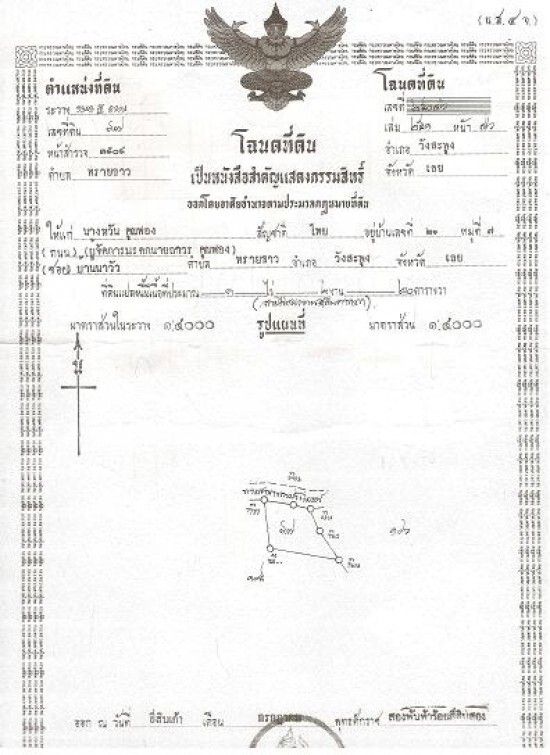 (น.ส.๔ จ.)
ตำแหน่งที่ดิน
ระวาง
เลขที่ดิน ๘๗
หน้าสำรวจ
ตำบล ทรายขาว
โฉนดที่ดิน
เลขที่
เล่ม หน้า ๘๖
อำเภอ วังสะพุง
จังหวัด เลย
โฉนดที่ดิน
เป็นหนังสือสำคัญแสดงกรรมสิทธิ์
ออกโดยอาศัยอำนาจตามประมวลกฎหมายที่ดิน
ให้แก่ นางหวัน คุณฟอง สัญชาติ ไทย อยู่บ้านเลขที่ ๒๑ หมู่ที่ ๗
(ถนน) (ผู้จัดการมรดกนายถาวร คุณฟอง)
(ซอย) บ้านนาวัว ตำบล ทรายขาว อำเภอ วังสะพุง จังหวัด เลย
ที่ดินแปลงนี้มีเนื้อที่ประมาณ ๓ ไร่ ๒ งาน ๒๐ ตารางวา
มาตราส่วนในระวาง ๑:๔๐๐๐ รูปแผนที่ มาตราส่วน ๑:๔๐๐๐
น
๘๗
๑๐๖
ออก ณ วันที่ ยี่สิบเก้า เดือน กรกฎาคม พุทธศักราช สองพันห้าร้อยสี่สิบสอง